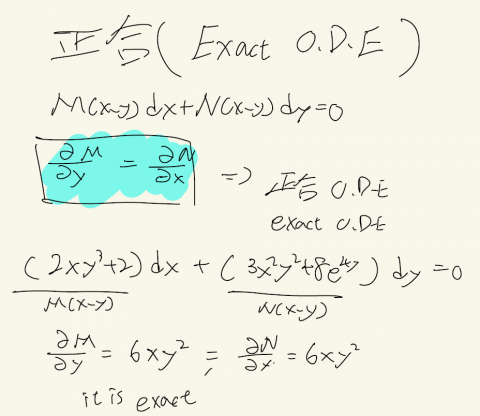 正合(Exact O.D.E)
M(x-y)dx+N(x-y)dy=0
∂M/∂y = ∂N/∂x => 正合 O.D.E
exact O.D.E
(2xy³+2)dx + (3x²y²+8e⁴ʸ)dy=0
M(x-y) N(x-y)
∂M/∂y = 6xy² = ∂N/∂x = 6xy²
it is exact